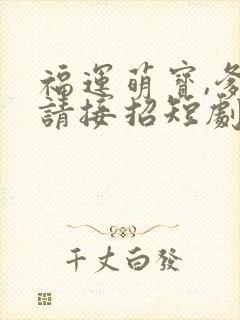 福運萌寶,
請接招短劇
千丈白發